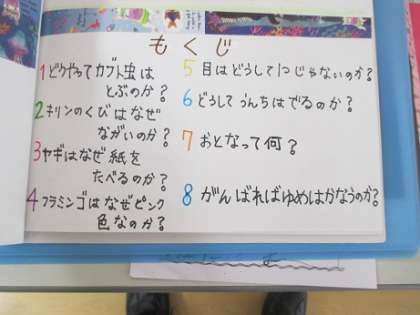 もくじ
1 どうやってカブト虫は
とぶのか?
2 キリンのくびはなぜ
ながいのか?
3 ヤギはなぜ紙を
たべるのか?
4 フラミンゴはなぜピンク
色なのか?
5 目はどうして1つじゃないのか?
6 どうしてうんちはでるのか?
7 おとなって何?
8 がんばればゆめはかなうのか?